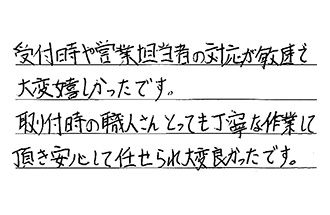 受付時や営業担当者の対応が敏速で
大変嬉しかったです。
取り付時の職人さんとっても丁寧な作業して
頂き安心して任せられ大変良かったです。